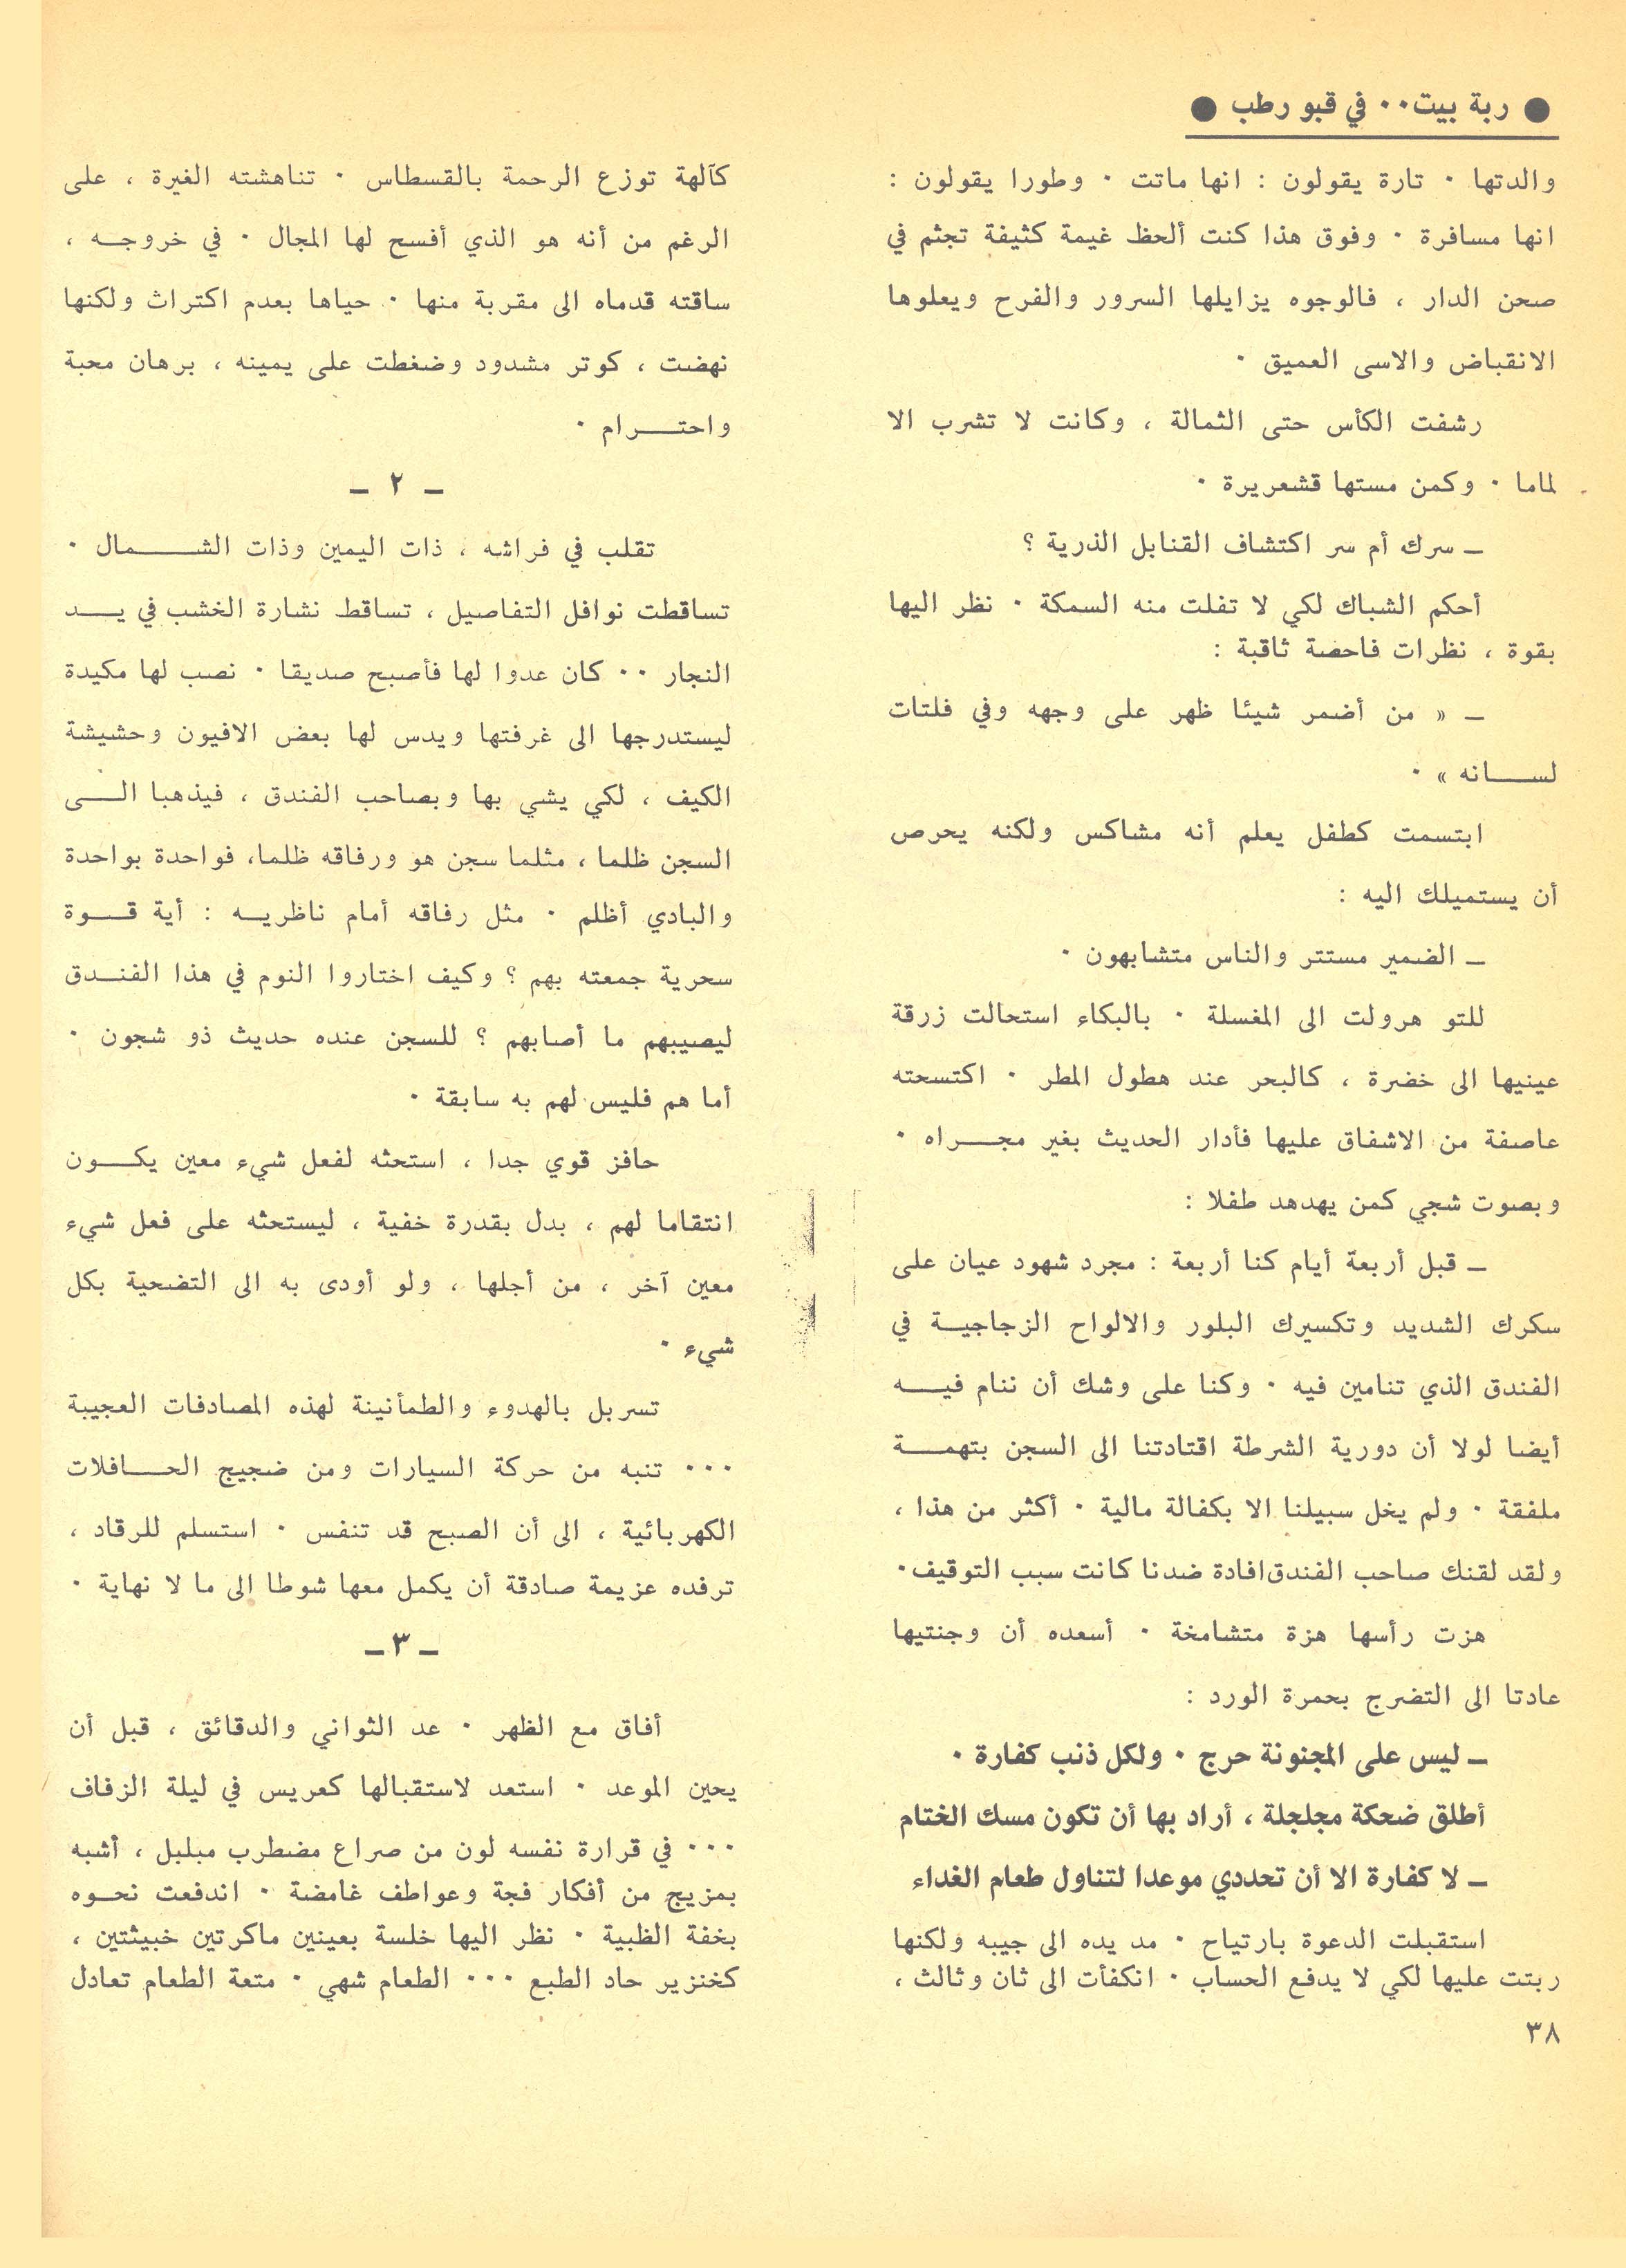 ● ربة بيت٠٠ في قبو رطب ●
والدتها ٠ تارة يقولون : انها ماتت ٠ وطورا يقولون :
انها مسافرة ٠ وفوق هذا كنت ألحظ غيمة كثيفة تجثم في
صحن الدار ، فالوجوه يزايلها السرور والفرح ويعلوها
الانقباض والاسى العميق ٠
رشفت الكأس حتى الثمالة ، وكانت لا تشرب الا
لماما ٠ وكمن مستها قشعريرة ٠
ــ سرك أم سر اكتشاف القنابل الذرية ؟
أحكم الشباك لكي لا تفلت منه السمكة ٠ نظر اليها
بقوة ، نظرات فاحصة ثاقبة :
ــ « من أضمر شيئا ظهر على وجهه وفي فلتات
لســـانه » ٠
ابتسمت كطفل يعلم أنه مشاكس ولكنه يحرص
أن يستميلك اليه :
ــ الضمير مستتر والناس متشابهون ٠
للتو هرولت الى المغسلة ٠ بالبكاء استحالت زرقة
عينيها الى خضرة ، كالبحر عند هطول المطر ٠ اكتسحته
عاصفة من الاشفاق عليها فأدار الحديث بغير مجــراه ٠
وبصوت شجي كمن يهدهد طفلا :
ــ قبل أربعة أيام كنا أربعة : مجرد شهود عيان على
سكرك الشديد وتكسيرك البلور والالواح الزجاجيــة في
الفندق الذي تنامين فيه ٠ وكنا على وشك أن ننام فيــه
أيضا لولا أن دورية الشرطة اقتادتنا الى السجن بتهمــة
ملفقة ٠ ولم يخل سبيلنا الا بكفالة مالية ٠ أكثر من هذا ،
ولقد لقنك صاحب الفندق افادة ضدنا كانت سبب التوقيف٠
هزت رأسها هزة متشامخة ٠ أسعده أن وجنتيها
عادتا الى التضرج بحمرة الورد :
ــ ليس على المجنونة حرج ٠ ولكل ذنب كفارة ٠
أطلق ضحكة مجلجلة ، أراد بها أن تكون مسك الختام
ــ لا كفارة الا أن تحددي موعدا لتناول طعام الغداء
استقبلت الدعوة بارتياح ٠ مد يده الى جيبه ولكنها
ربتت عليها لكي لا يدفع الحساب ٠ انكفأت الى ثان وثالث ،
كآلهة توزع الرحمة بالقسطاس ٠ تناهشته الغيرة ، على
الرغم من أنه هو الذي أفسح لها المجال ٠ في خروجــه ،
ساقته قدماه الى مقربة منها ٠ حياها بعدم اكتراث ولكنها
نهضت ، كوتر مشدود وضغطت على يمينه ، برهان محبة
واحتـــرام ٠
ــ ٢ ــ
تقلب في فراشه ، ذات اليمين وذات الشـــمال ٠
تساقطت نوافل التفاصيل ، تساقط نشارة الخشب في يــد
النجار ٠٠ كان عدوا لها فأصبح صديقا ٠ نصب لها مكيدة
ليستدرجها الى غرفتها ويدس لها بعض الافيون وحشيشة
الكيف ، لكي يشي بها وبصاحب الفندق ، فيذهبا الــى
السجن ظلما ، مثلما سجن هو ورفاقه ظلما، فواحدة بواحدة
والبادي أظلم ٠ مثل رفاقه أمام ناظريــه : أية قــوة
سحرية جمعته بهم ؟ وكيف اختاروا النوم في هذا الفنــدق
ليصيبهم ما أصابهم ؟ للسجن عنده حديث ذو شجون ٠
أما هم فليس لهم به سابقة ٠
حافز قوي جدا ، استحثه لفعل شيء معين يكــون
انتقاما لهم ، بدل بقدرة خفية ، ليستحثه على فعل شيء
معين آخر ، من أجلها ، ولو أودى به الى التضحية بكل
شيء ٠
تسربل بالهدوء والطمأنينة لهذه المصادفات العجيبة
٠٠٠ تنبه من حركة السيارات ومن ضجيج الحــافلات
الكهربائية ، الى أن الصبح قد تنفس ٠ استسلم للرقاد ،
ترفده عزيمة صادقة أن يكمل معها شوطا الى ما لا نهاية ٠
ــ ٣ ــ
أفاق مع الظهر ٠ عد الثواني والدقائق ، قبل أن
يحين الموعد ٠ استعد لاستقبالها كعريس في ليلة الزفاف
٠٠٠ في قرارة نفسه لون من صراع مضطرب مبلبل ، أشبه
بمزيج من أفكار فجة وعواطف غامضة ٠ اندفعت نحــوه
بخفة الظبية ٠ نظر اليها خلسة بعينين ماكرتين خبيثتين ،
كخنزير حاد الطبع ٠٠٠ الطعام شهي ٠ متعة الطعام تعادل
٣٨